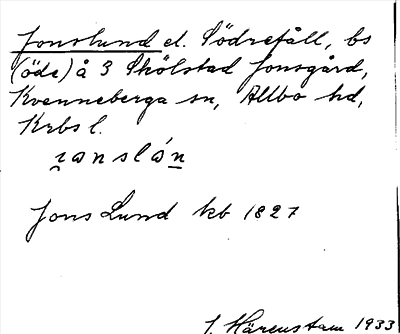 Jonslund el. Södrefåll, bs
(öde) å 3 Skölstad Jonsgård,
Kvenneberga sn, Allbo hd,
Krbs l.
ɪanslán
Jons Lund kb 1827
J. Härenstam 1933